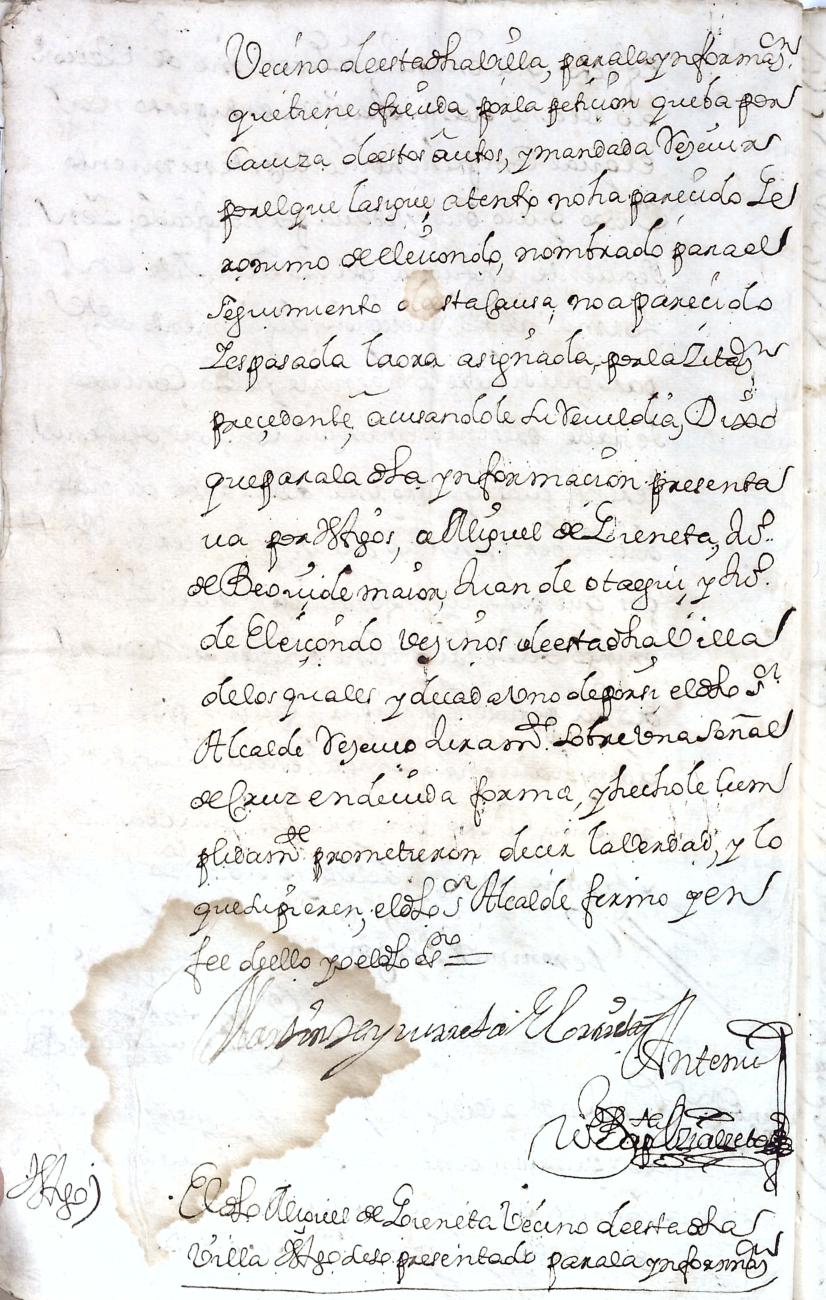 Vecino deesta dha Villa, para la ynformaçon
que tiene ofreçida por la peticion que ba por
Caveza de estos autos, y mandada Reçiuir
por el que la sigue, atento no ha parecido Ge
ronimo de Eleicondo, nombrado para el
seguimiento desta Causa, no a parecido
y es pasada la ora asignada, por la Zitaon
preçedente, acusandole su Reueldia, Dixo
que para la dha ynformaçion presenta
ua por ttgos, a Miguel de Goeneta, Ju.
de Beovide maior, Juan de otaegui, y Ju.
de Eleicondo vezinos de esta dha Villa
de los quales y de cada vno de por si el dho sr
Alcalde Reçiuio Juramto. sobre vna señal
de Cruz en deuida forma, y hecho le Cum
plidamte. prometieron decir la verdad, y lo
que supieren, el dho sr Alcalde firmo y en
fee de ello yo el dho ssno =
Martin de
Ante mi
ttgo
El dho Miguel de Goeneta Vecino de esta dha
Villa ttgo deso presentado para la ynformaon